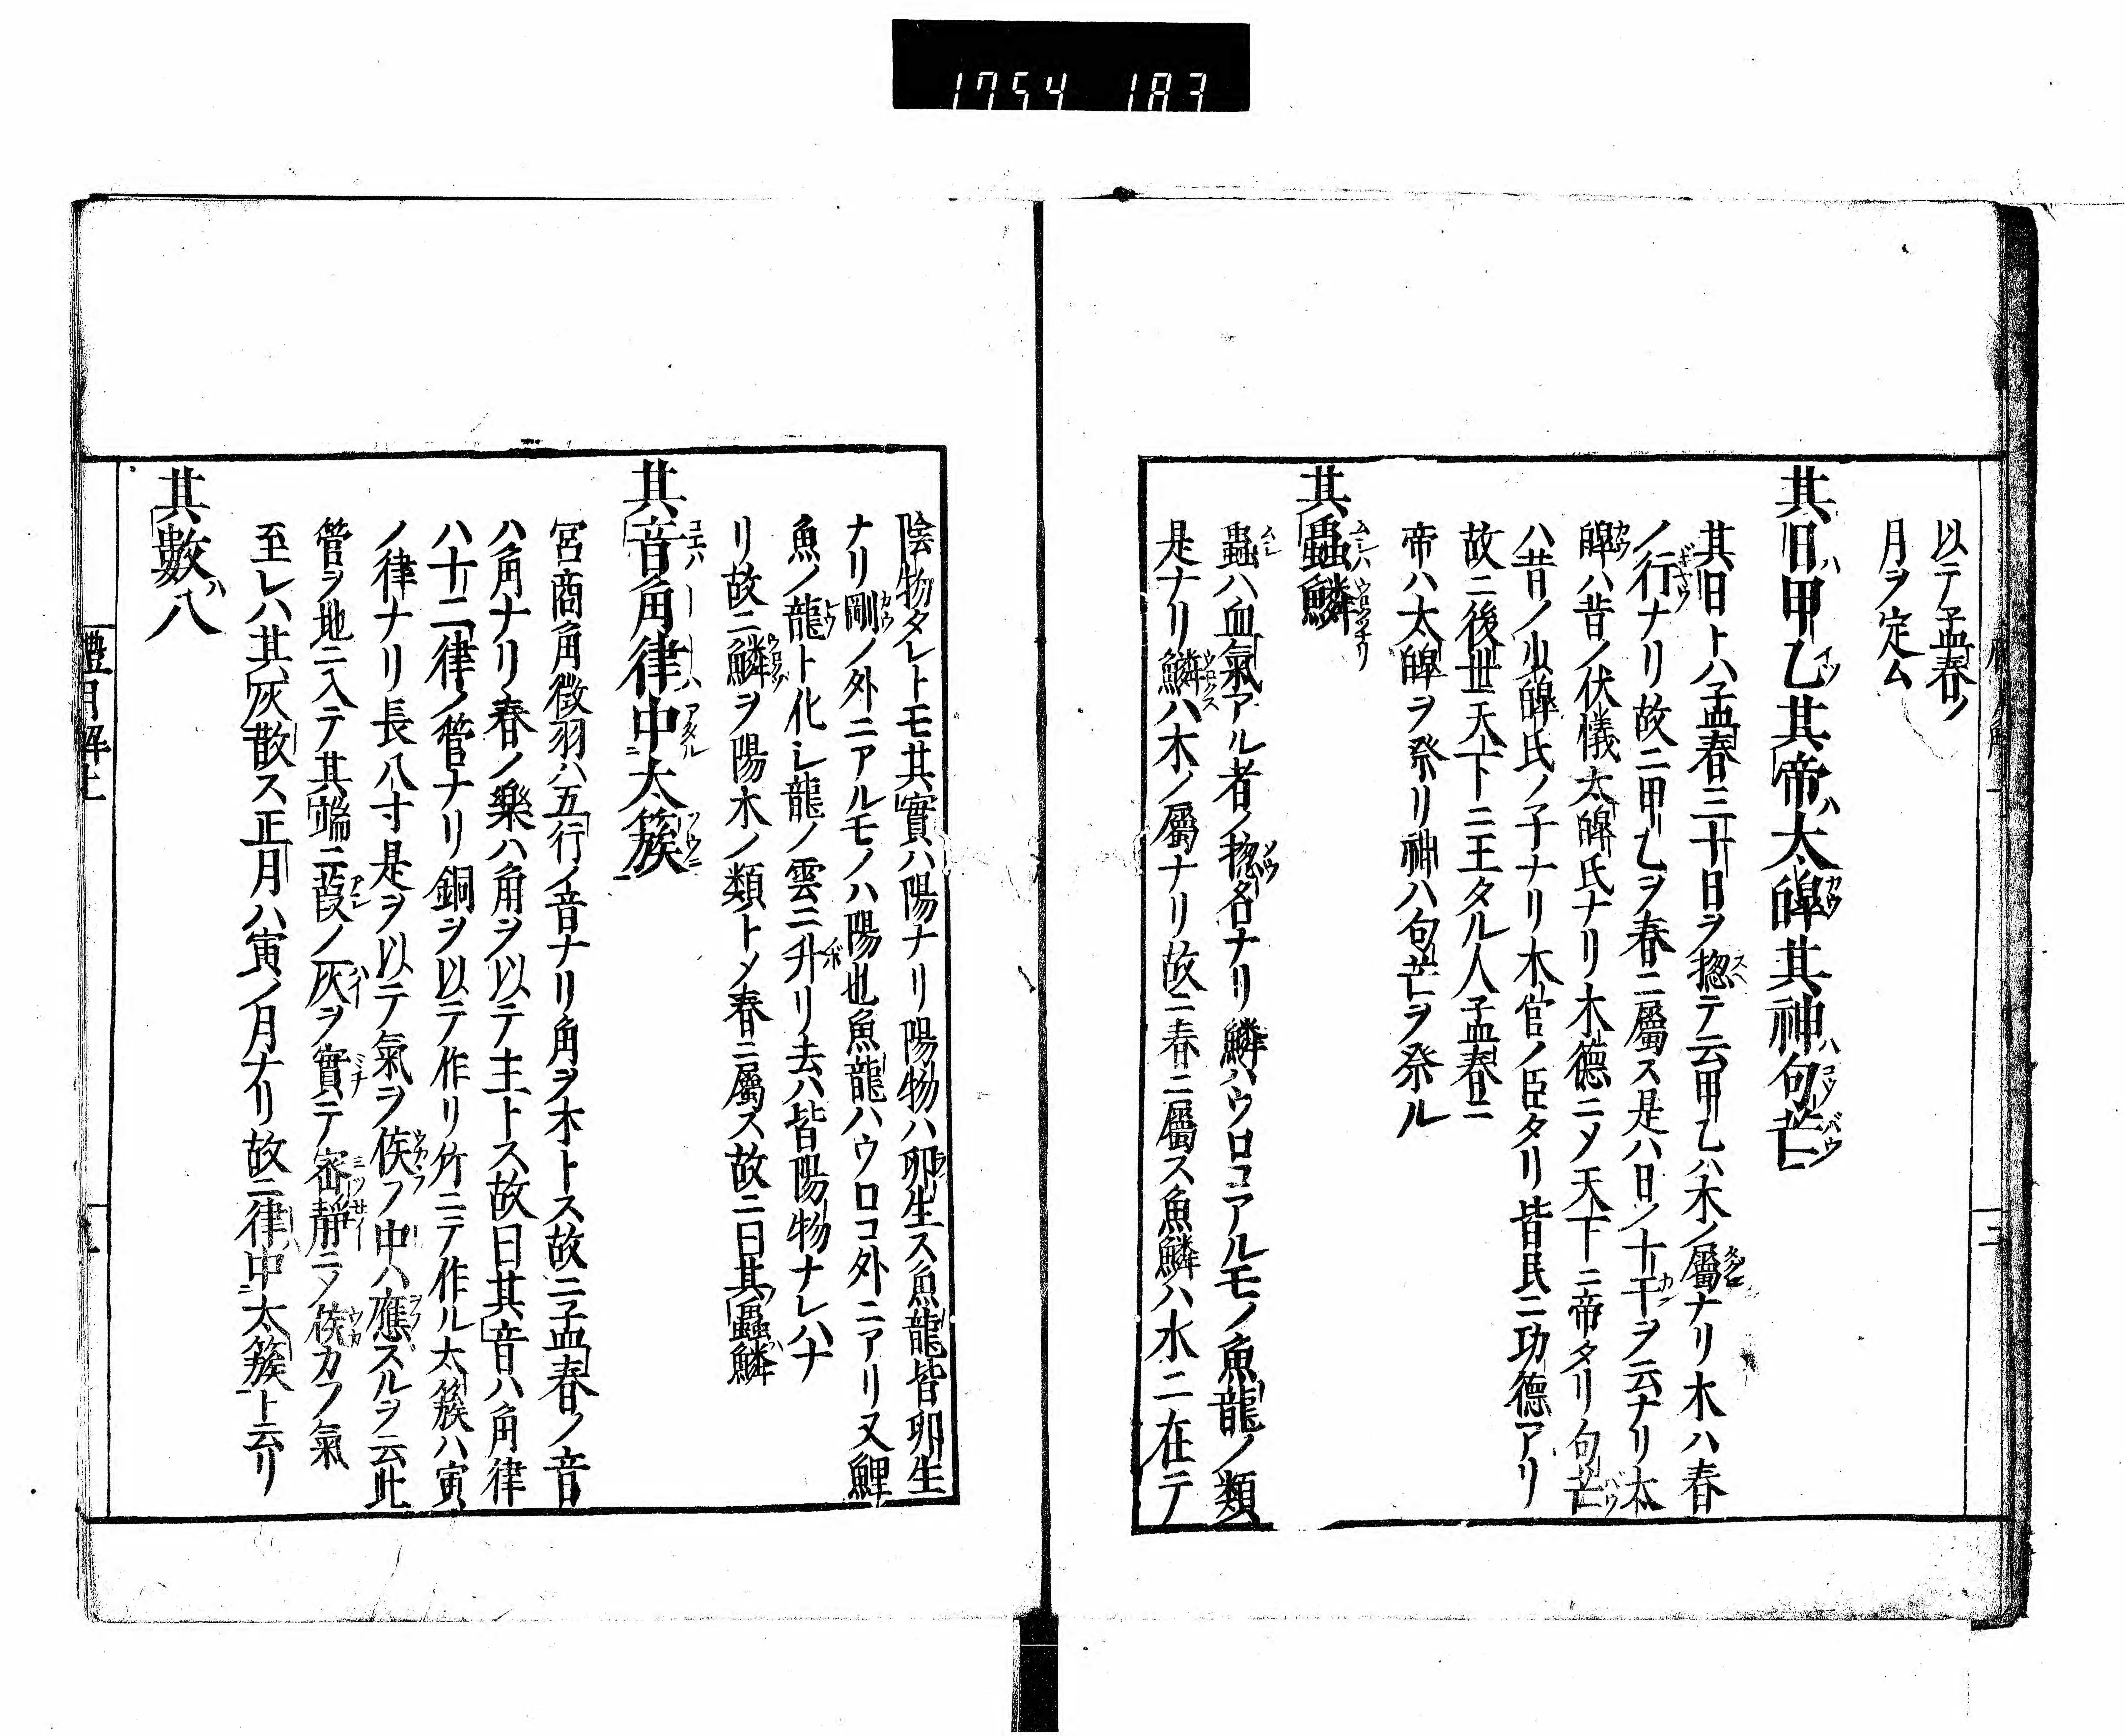 1754 183
以テ孟春ノ
月ヲ定ム
其日甲乙其帝太皞其神句芒
其日トハ孟春三十日ヲ惣テ云甲乙ハ木ノ屬ナリ木ハ春
ノ行ナリ故ニ甲乙ヲ春ニ屬ス是ハ日ノ十干ヲ云ナリ太
皞ハ昔ノ伏犧太皞氏ナリ木德ニメ天下ニ帝タリ句芒
ハ昔ノ少皞氏ノ子ナリ木官ノ臣タリ皆民ニ功德アリ
故ニ後世天下ニ王タル人孟春ニ
帝ハ太皞ヲ祭リ神ハ句芒ヲ祭ル
其蟲鱗
蟲ハ血氣アル者ノ惣名ナリ鱗ハウロコアルモノ魚龍ノ類
是ナリ鱗ハ木ノ屬ナリ故ニ春ニ屬ス魚鱗ハ水ニ在テ
陰物タレトモ其實ハ陽ナリ陽物ハ卵生ス魚龍皆卵生
ナリ剛ノ外ニアルモノハ陽也魚龍ハウロコ外ニアリ又鯉
魚ノ龍ト化レ龍ノ雲ニ升リ去ハ皆陽物ナレハナ
リ故ニ鱗ヲ陽木ノ類トメ春ニ屬ス故ニ曰其蟲鱗
其音角律中太簇
宮商角徴羽ハ五行ノ音ナリ角ヲ木トス故ニ孟春ノ音
ハ角ナリ春ノ樂ハ角ヲ以テ主トス故曰其音ハ角律
ハ十二律ノ管ナリ銅ヲ以テ作リ竹ニテ作ル太簇ハ寅
ノ律ナリ長八寸是ヲ以テ氣ヲ候フ中ハ應ズルヲ云此
管ヲ地ニ入テ其端ニ葭ノ灰ヲ實テ密靜ニメ候カフ氣
至レハ其灰散ス正月ハ寅ノ月ナリ故ニ律中太簇ト云リ
其數八
禮月解上